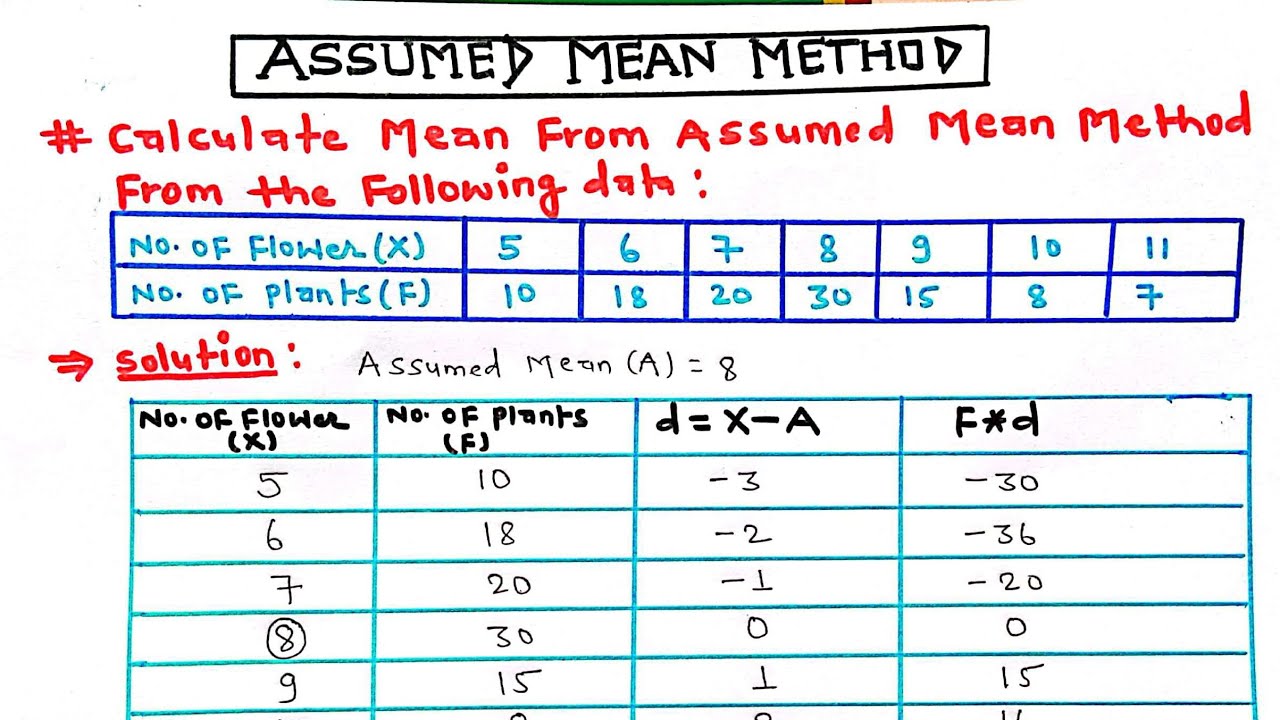 ASSUMED MEAN METHOD
# Calculate Mean From Assumed Mean Method
From the Following data :
No. of Flower (X) 5 6 7 8 9 10 11
No. of plants (F) 10 18 20 30 15 8 7
⇒ Solution : Assumed Mean (A) = 8
No. of Flower (X) No. of plants (F) d = X - A F*d
5 10 -3 -30
6 18 -2 -36
7 20 -1 -20
8 30 0 0
9 15 1 15